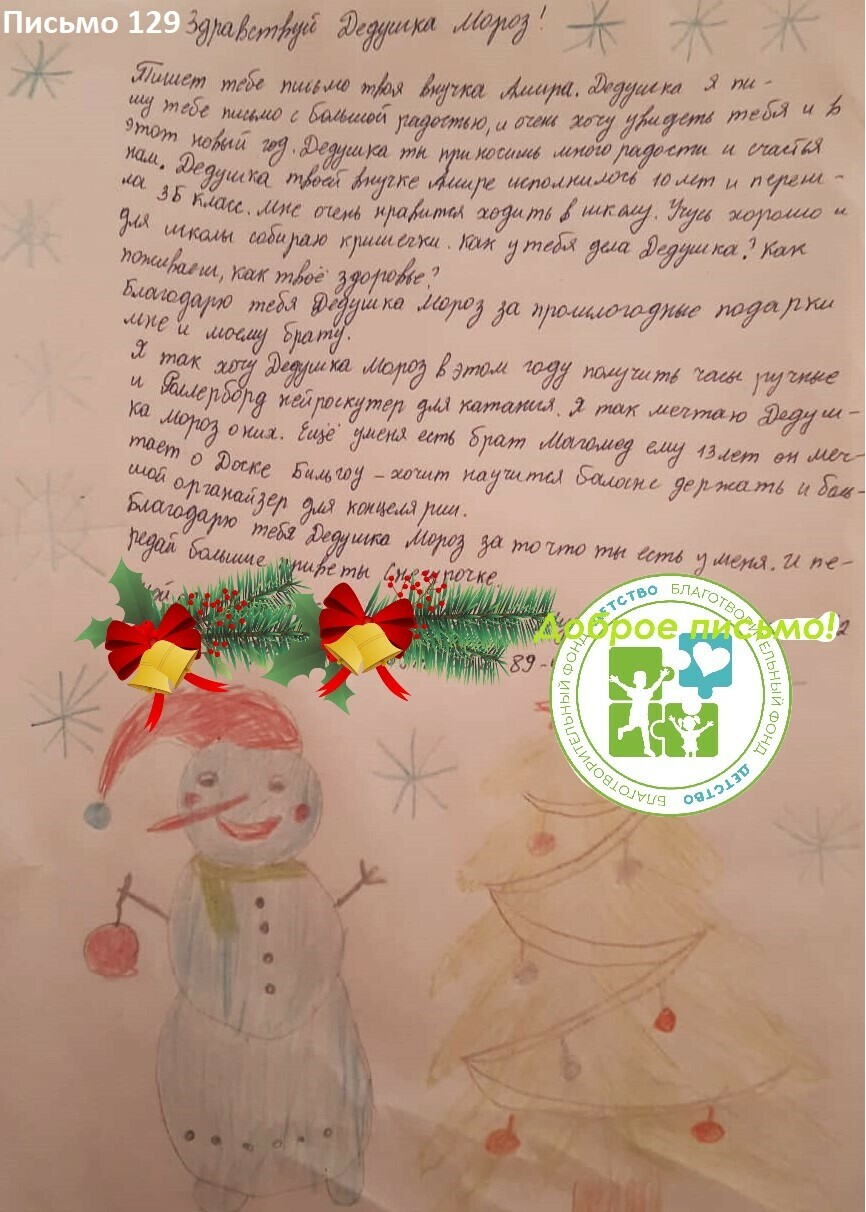 Письмо 129
Здравствуй Дедушка Мороз!
Пишет тебе письмо твоя внучка Амира. Дедушка я пи-
шу тебе письмо с большой радостью, и очень хочу увидеть тебя и в
этот новый год. Дедушка ты приносишь много радости и счастья
нам. Дедушка твоей внучке Амире исполнилось 10 лет и переш-
ла 3Б класс. Мне очень нравится ходить в школу. Учусь хорошо и
для школы собираю кришечки. Как у тебя дела Дедушка? Как
поживаеш, как твоё здоровье?
Благодарю тебя Дедушка Мороз за прошлогодные подарки
мне и моему брату.
Я так хочу Дедушка Мороз в этом году получить часы ручные
и Роллерборд нейроскутер для катания. Я так мечтаю Дедуш-
ка Мороз о них. Ещё у меня есть брат Магомед ему 13 лет он меч-
тает о Доске Бильгоу – хочит научится баланс держать и боль-
шой органайзер для концелярии.
Благодарю тебя Дедушка Мороз за то что ты есть у меня. И пе-
редай большие приветы Снегурочке
Доброе письмо!
2
89-
БЛАГОТВОРИТЕЛЬНЫЙ ФОНД ДЕТСТВО
БЛАГОТВОРИТЕЛЬНЫЙ ФОНД ДЕТСТВО